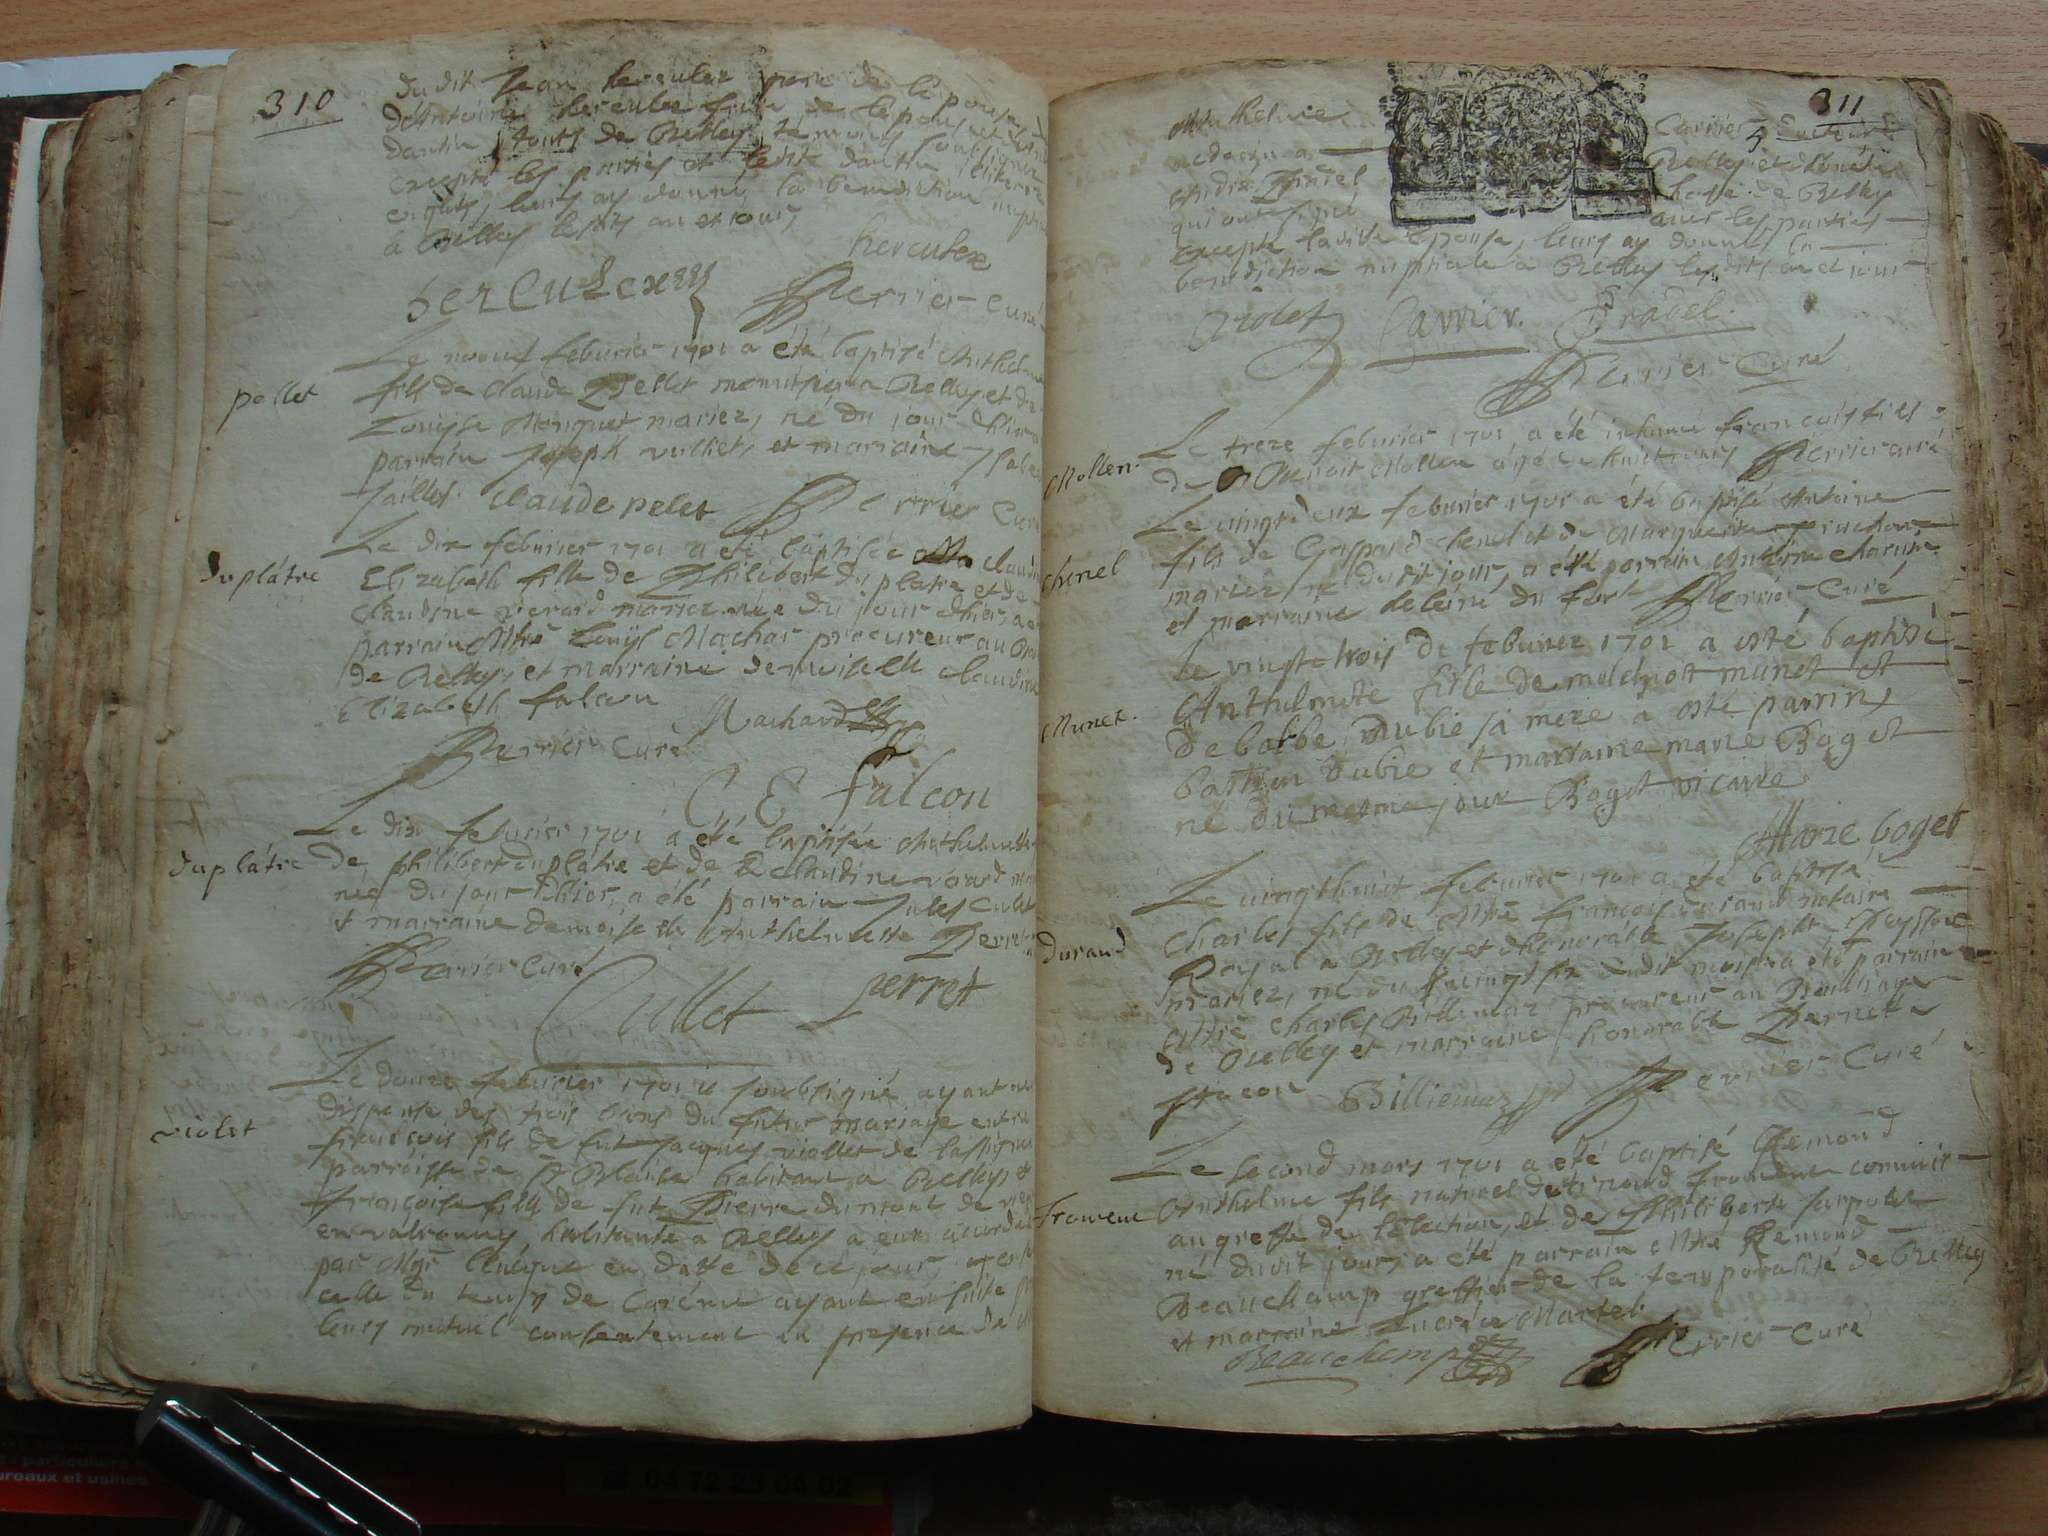 310
du dit Jean herculex pere de l'epouse
d'Antoine herculex frere de l'epouse et
dantin touts de Belley temoins soubsignez
excepté les parties et ledit dantin illiterez
enquis, leurs ay donné la benediction nuptiale
à Belley lesdits an et jour
herculex
herCuLex Perrier Curé
Le neouf feburier 1701 a été baptizé Anthelme
pellet
fils de claude Pellet menusier a Belley et de
Louyse Monguet mariez, né du jour d'hier
parrain Joseph vulliet, et marraine
Jaillet. claude pelet Perrier Curé
Le dix feburier 1701 a eté baptisée claudine
duplátre
Elizabeth fille de Philibert du platre et de
claudine verard mariez née du jour d'hier, a
parrain Mtre Louys Machar procureur au
de Belley, et marraine demoiselle claudine
Elizabeth falcon
Machard
Perrier Curé
C E falcon
Le dix feburier 1701 a été baptisée Anthelmette
duplâtre
de philibert du plâtre et de claudine verard
née du jour d'hier, a été parrain Jules Cullet
et marraine demoiselle Anthelmette Perret
Perrier Curé
Cullet perret
Le douze feburier 1701 je soubsigné ayant
violet
dispense des trois bans du futur mariage entre
françois fils de fut Jacques viollet de
parroisse de St Blaise habitant a Belley, et
françoise fille de fut Pierre dumont de
en valromey, habitante a Belley a eux accordée
par Mgr l'évéque en datte de ce jour,
celle du temps de Caréme ayant en suite
leurs mutuel consentement en presence de
311
Anthelme Carrier docteur
medecin a Belley et d'honé
qui ont signé avec les parties
excepté ladite epouse, leurs ay donné la
benediction nuptiale a Belley lesdits an et jour
violet Carrier. Pradel.
Perrier Curé
Le treze feburier 1701, a été inhumé françois fils
Mollen.
de Benoit Mollen agé de huict mois Perrier curé
Le vingt deux feburier 1701 a été baptisé Antoine
chenel
fils de Gaspard chenel et de Marguerite
mariez né dudit jour, a été parrain Antoine
et marraine heleine du fort Perrier Curé
le vingt trois de feburier 1701 a esté baptisé
Munet.
Anthelmete fille de melchyott munet et
de barbe dubie sa mere a esté parrin
bastian dubie et marraine marie Boget
né du mesme jour Boget vicaire
Marie boget
Le vingt huict feburier 1701 a été baptisé
charles fils de Mtre françois durand notaire
durand
Royal a Belley et d'honorable Josephte Peysson
mariez, né du vingt six dudit mois, a été parrain
Mtre Charles Billiemaz procureur au Bailliage
de Belley et marraine honorable Pernette
Stacon Billiemaz Perrier Curé
Le second mars 1701 a été baptisé Remond
fromene
Anthelme fils naturel de Arnaud fromene commis
au greffe de l'election, et de Philiberte
né dudit jour, a été parrain Mtre Remond
Beauchamp greffier de la temporalité de Belley
et marraine Lucrece Martel.
Beauchamp Perrier Curé
particuliers
ureaux et usines
04 72 25 64 02